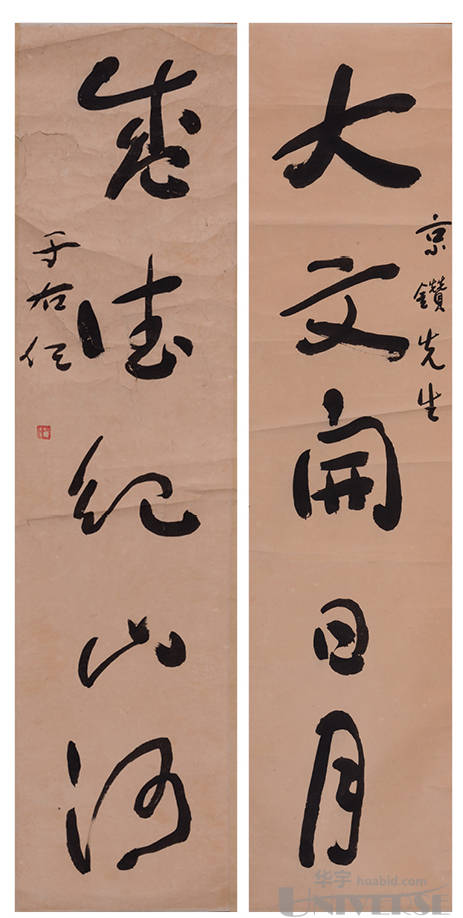 大文開日月
京鑽先生
盛德紀山河
于右任
华宇 huabid.com
UNIVERSE